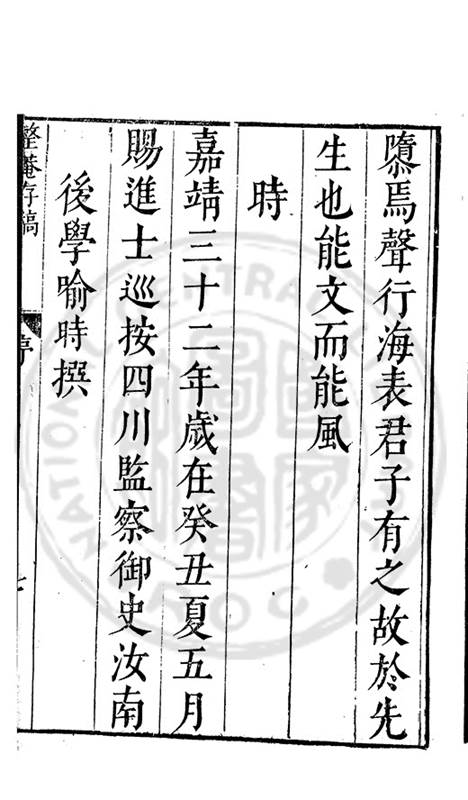 隳焉聲行海表君子有之故於先
生也能文而能風
時
嘉靖三十二年歲在癸丑夏五月
賜進士巡按四川監察御史汝南
後學喻時撰
整菴存稿
序
七